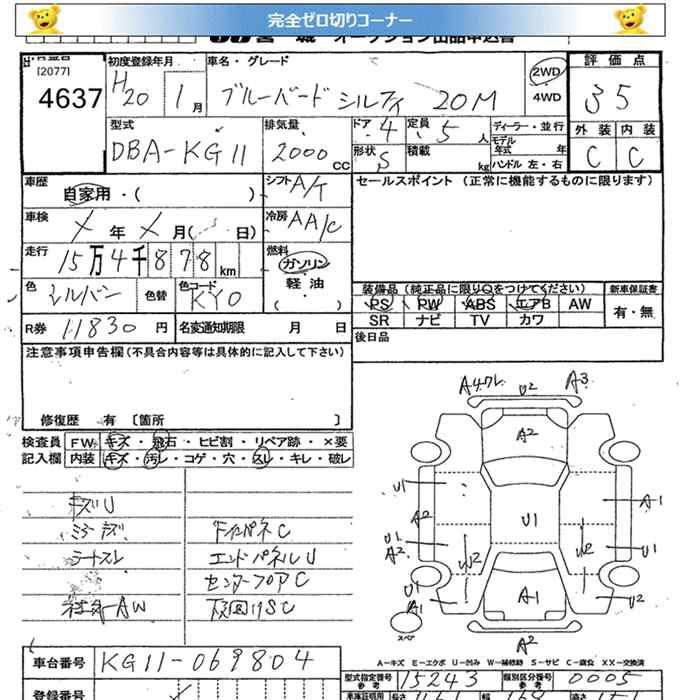 完全ゼロ切りコーナー
宮 城 オークション出品申込書
[2077]
4637
初度登録年月
H20 1月
車名・グレード
ブルーバード シルフィ 20M
2WD
4WD
評価点
3 5
型式
DBA-KG11
排気量
2000 cc
ドア・形状
4 S
定員 5 人
積載 kg
ディーラー・並行
モデル年式 年
ハンドル 左・右
外装 内装
C C
車歴
自家用・( )
シフト A/T
セールスポイント (正常に機能するものに限ります)
車検
年 月( 日)
冷房 AA/C
走行
15万4千878km
燃料
ガソリン
軽油
( )
色 シルバー 色替 色コード KY0
装備品 (純正品に限り○をつけてください)
新車保証書
PS PW ABS エアB AW
有・無
SR ナビ TV カワ
R券 11830 円 名変通知期限 月 日
後日品
注意事項申告欄(不具合内容等は具体的に記入して下さい)
修復歴 有 [箇所 ]
検査員 FW キズ・飛石・ヒビ割・リペア跡・×要
記入欄 内装 キズ・汚レ・コゲ・穴・スレ・キレ・破レ
キズU
シートスレ エンドパネルU
センターフロアC
AW 下回りSC
A3
U2
A2
U1
A1
U1
A2
U1
A2
W2
W2
U1
U1
A1
A1
U2
A2
スペア
A-キズ E-エクボ U-凹み W-補修跡 S-サビ C-腐食 XX-交換済
車台番号 KG11-069804
型式指定番号 15243 類別区分番号 0005
登録番号